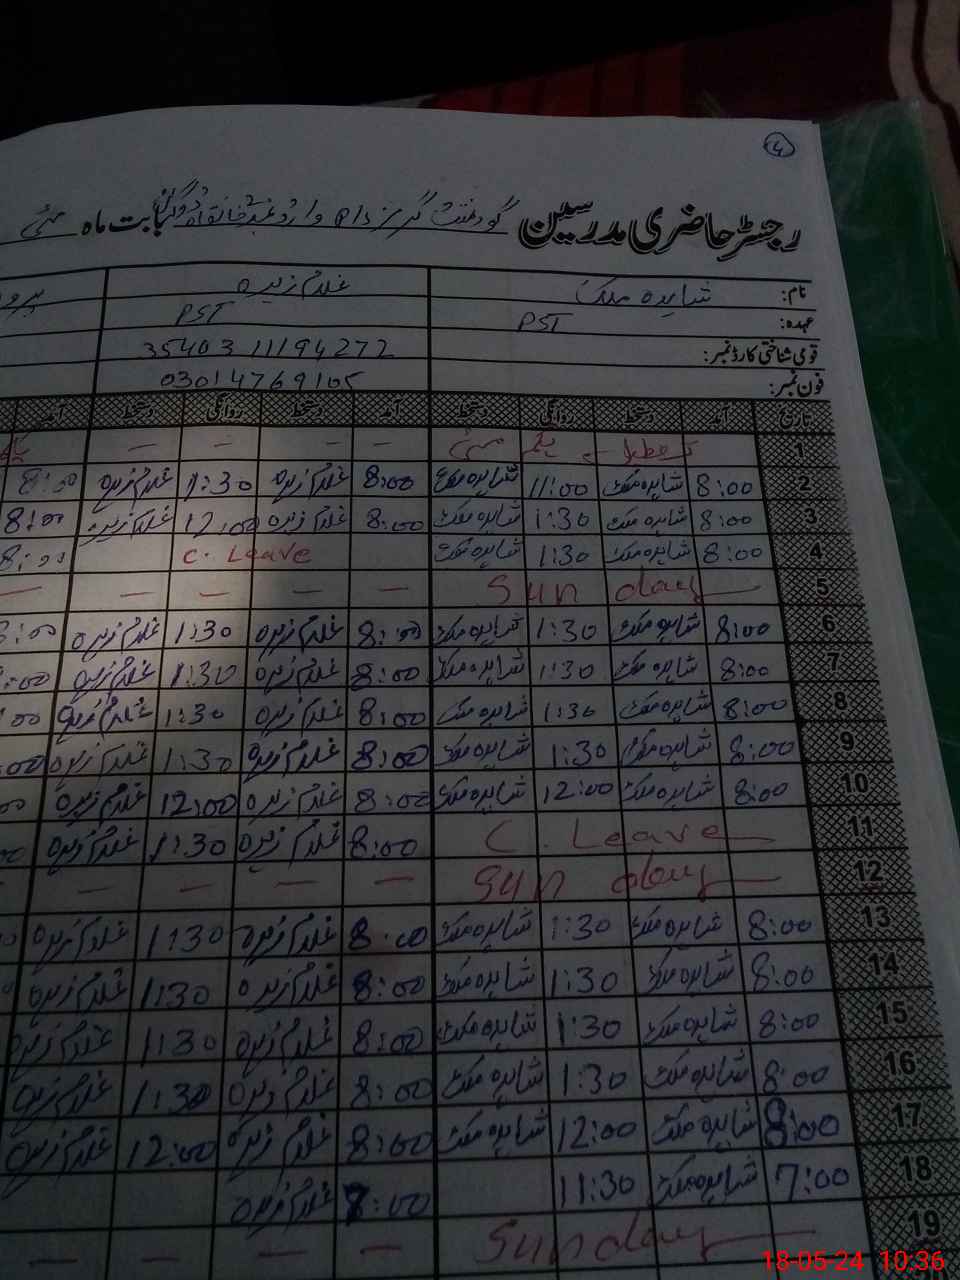 4
رجسٹر حاضری مدرسین گورنمنٹ گرلز بابت ماہ مئی
نام: شاہدہ ملک غلام زہرہ
عہدہ: PST PST
قومی شناختی کارڈ نمبر: 35403 11194272
فون نمبر: 03014769105
تاریخ آمد دستخط روانگی دستخط آمد دستخط روانگی دستخط آمد
1 تعطیل یکم مئی — — — —
2 8:00 شاہدہ ملک 11:00 شاہدہ ملک 8:00 غلام زہرہ 1:30 غلام زہرہ 8:00
3 8:00 شاہدہ ملک 1:30 شاہدہ ملک 8:00 غلام زہرہ 12:00 غلام زہرہ 8:00
4 8:00 شاہدہ ملک 1:30 شاہدہ ملک C. Leave 8:00
5 Sunday — — — — —
6 8:00 شاہدہ ملک 1:30 شاہدہ ملک 8:00 غلام زہرہ 1:30 غلام زہرہ 8:00
7 8:00 شاہدہ ملک 1:30 شاہدہ ملک 8:00 غلام زہرہ 1:30 غلام زہرہ :00
8 8:00 شاہدہ ملک 1:30 شاہدہ ملک 8:00 غلام زہرہ 1:30 غلام زہرہ :00
9 8:00 شاہدہ ملک 1:30 شاہدہ ملک 8:00 غلام زہرہ 1:30 غلام زہرہ :00
10 8:00 شاہدہ ملک 12:00 شاہدہ ملک 8:00 غلام زہرہ 12:00 غلام زہرہ 00
11 C. Leave 8:00 غلام زہرہ 1:30 غلام زہرہ
12 Sunday — — — —
13 8:00 شاہدہ ملک 1:30 شاہدہ ملک 8:00 غلام زہرہ 1:30 غلام زہرہ
14 8:00 شاہدہ ملک 1:30 شاہدہ ملک 8:00 غلام زہرہ 1:30 غلام زہرہ
15 8:00 شاہدہ ملک 1:30 شاہدہ ملک 8:00 غلام زہرہ 1:30 غلام زہرہ
16 8:00 شاہدہ ملک 1:30 شاہدہ ملک 8:00 غلام زہرہ 1:30 غلام زہرہ
17 8:00 شاہدہ ملک 12:00 شاہدہ ملک 8:00 غلام زہرہ 12:00 غلام زہرہ
18 7:00 شاہدہ ملک 11:30 غلام زہرہ
19 Sunday — — — —
18-05-24 10:36